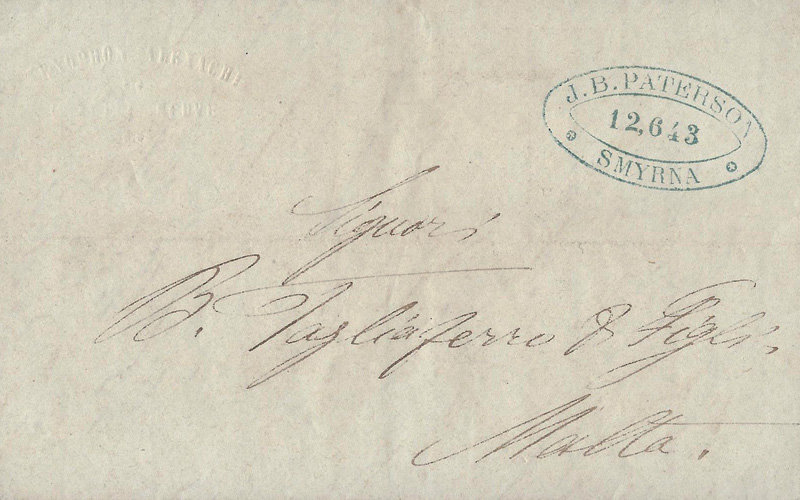 J. B. PATERSON
12,643
SMYRNA
Signori
B. Tagliaferro & Figli
Malta.